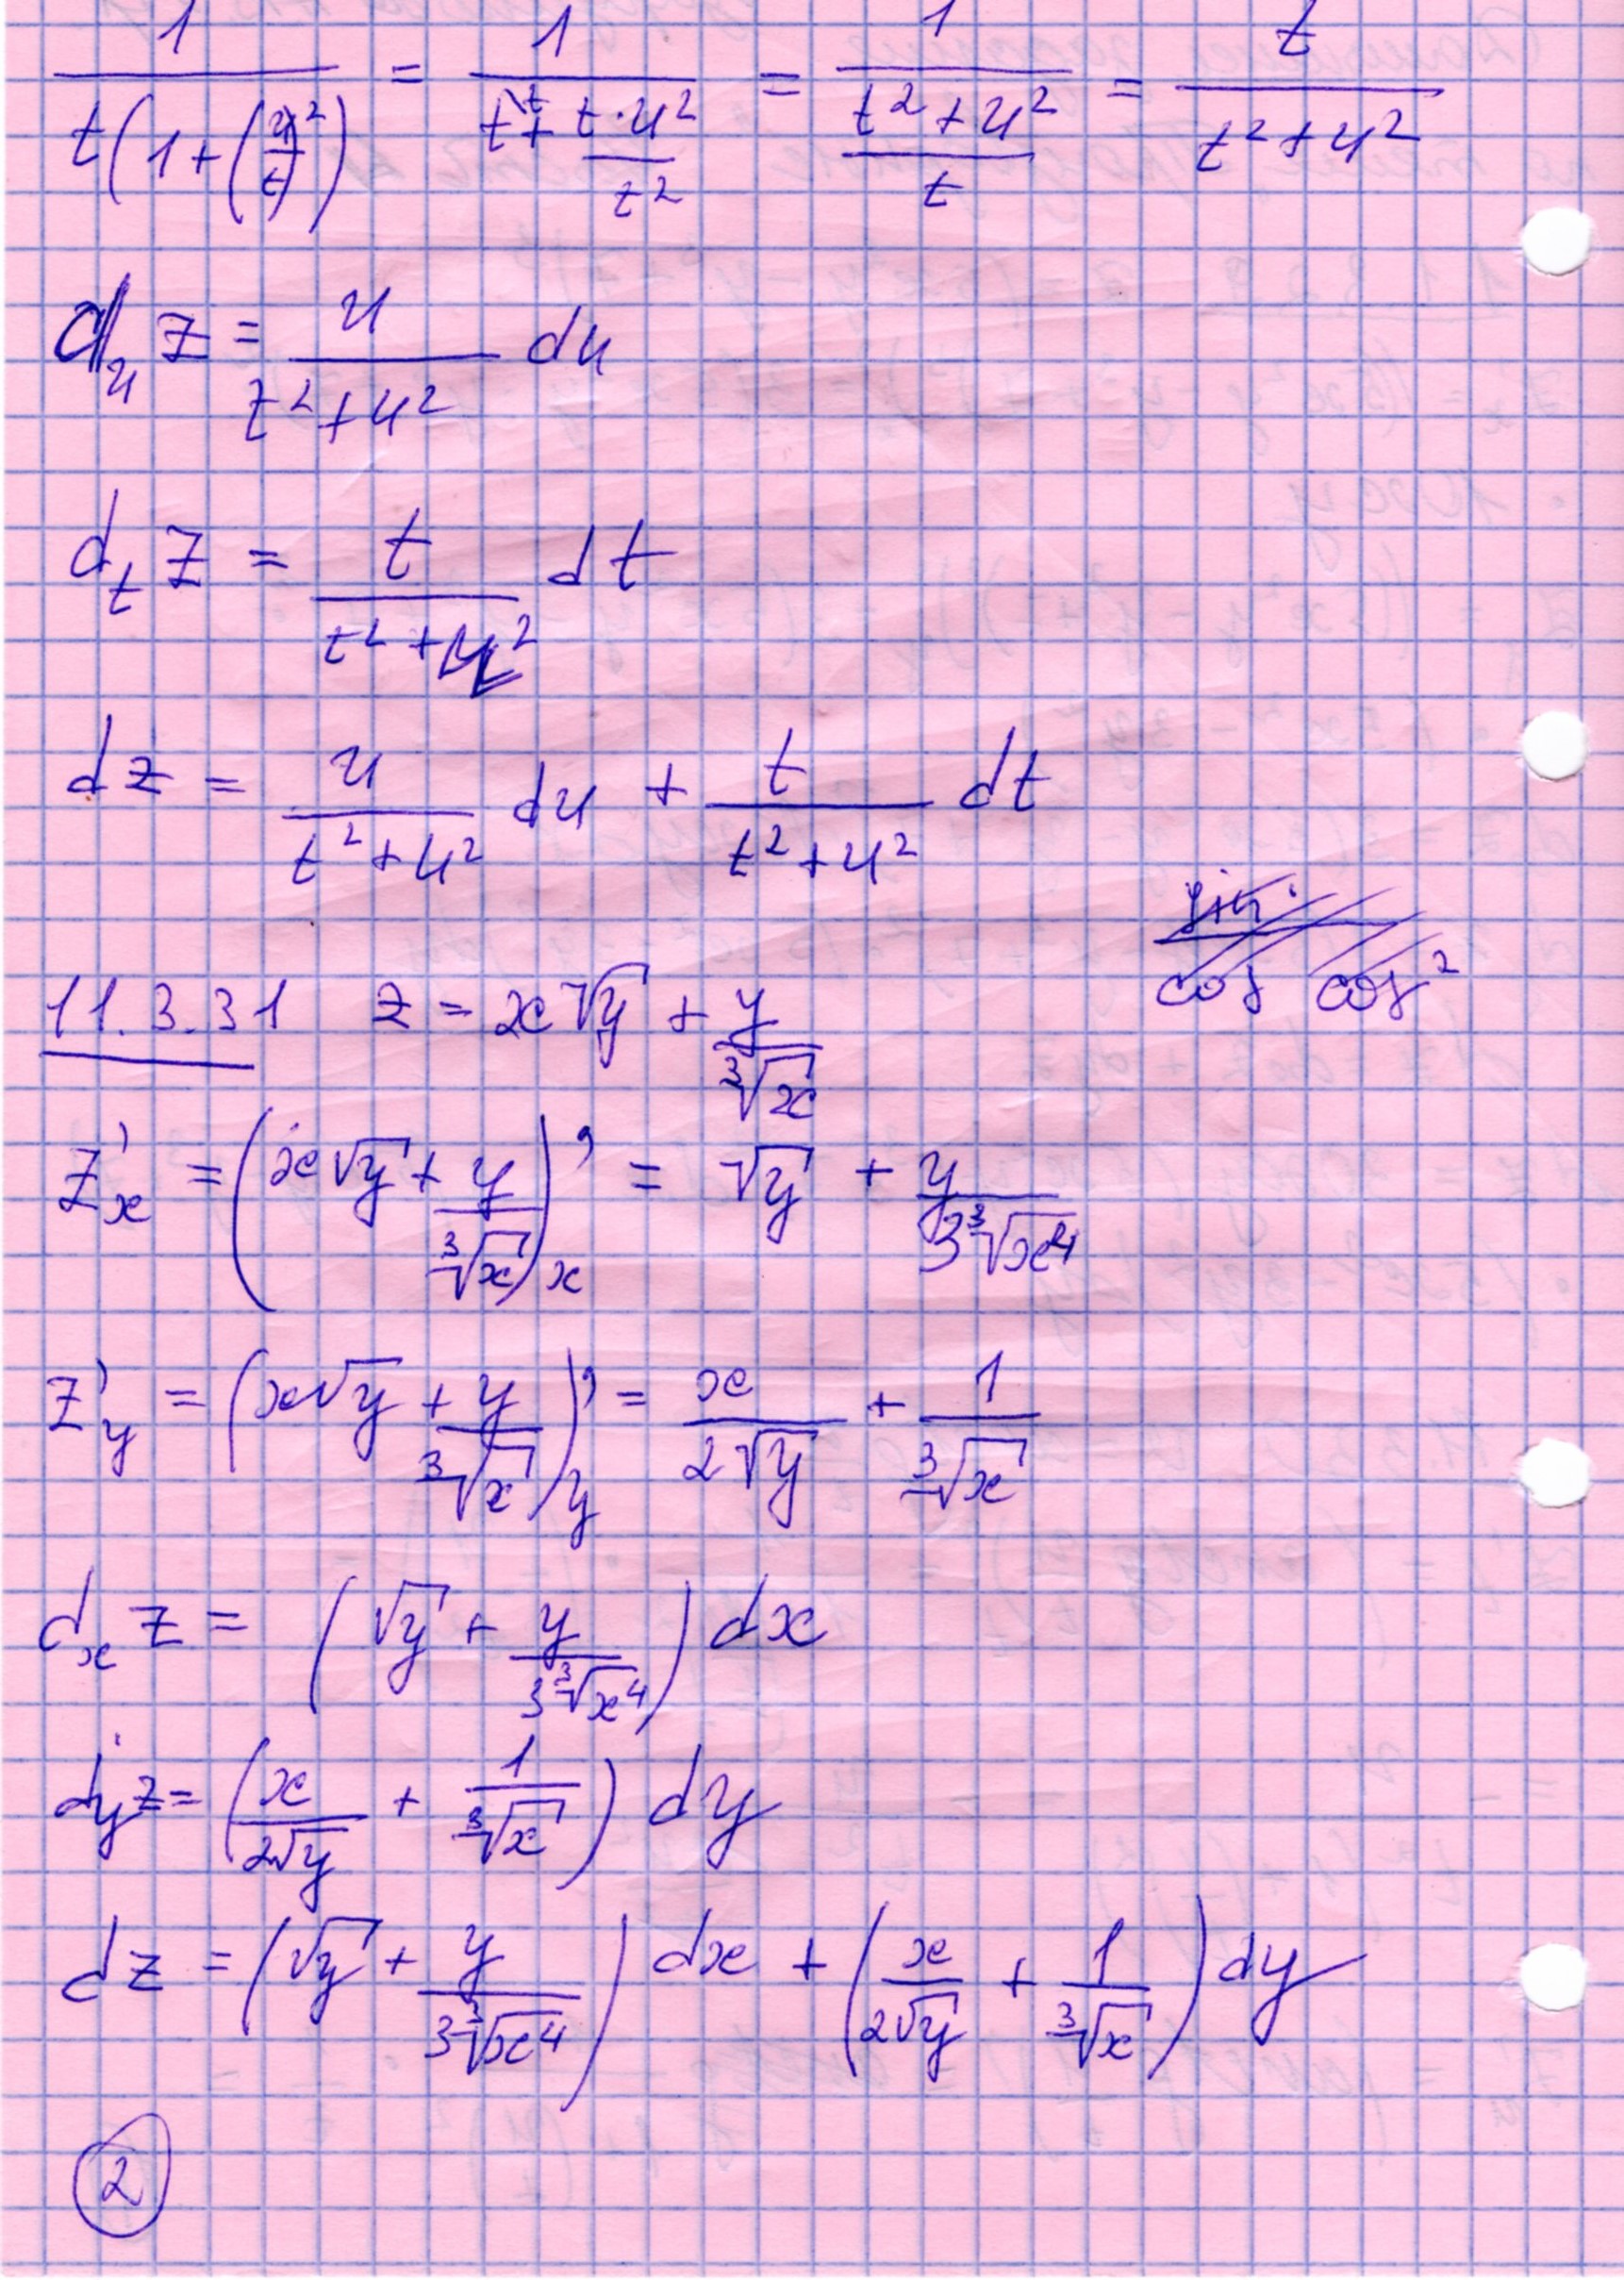 1/(t(1+(u/t)²)) = 1/(t + t·u²/t²) = 1/((t²+u²)/t) = t/(t²+u²)
d_u z = u/(t²+u²) du
d_t z = t/(t²+u²) dt
dz = u/(t²+u²) du + t/(t²+u²) dt
cos cos²
11.3.31 z = x√y + y/∛x
z'_x = (x√y + y/∛x)'_x = √y + y/(3∛x⁴)
z'_y = (x√y + y/∛x)'_y = x/(2√y) + 1/∛x
d_x z = (√y + y/(3∛x⁴)) dx
d_y z = (x/(2√y) + 1/∛x) dy
dz = (√y + y/(3∛x⁴)) dx + (x/(2√y) + 1/∛x) dy
2